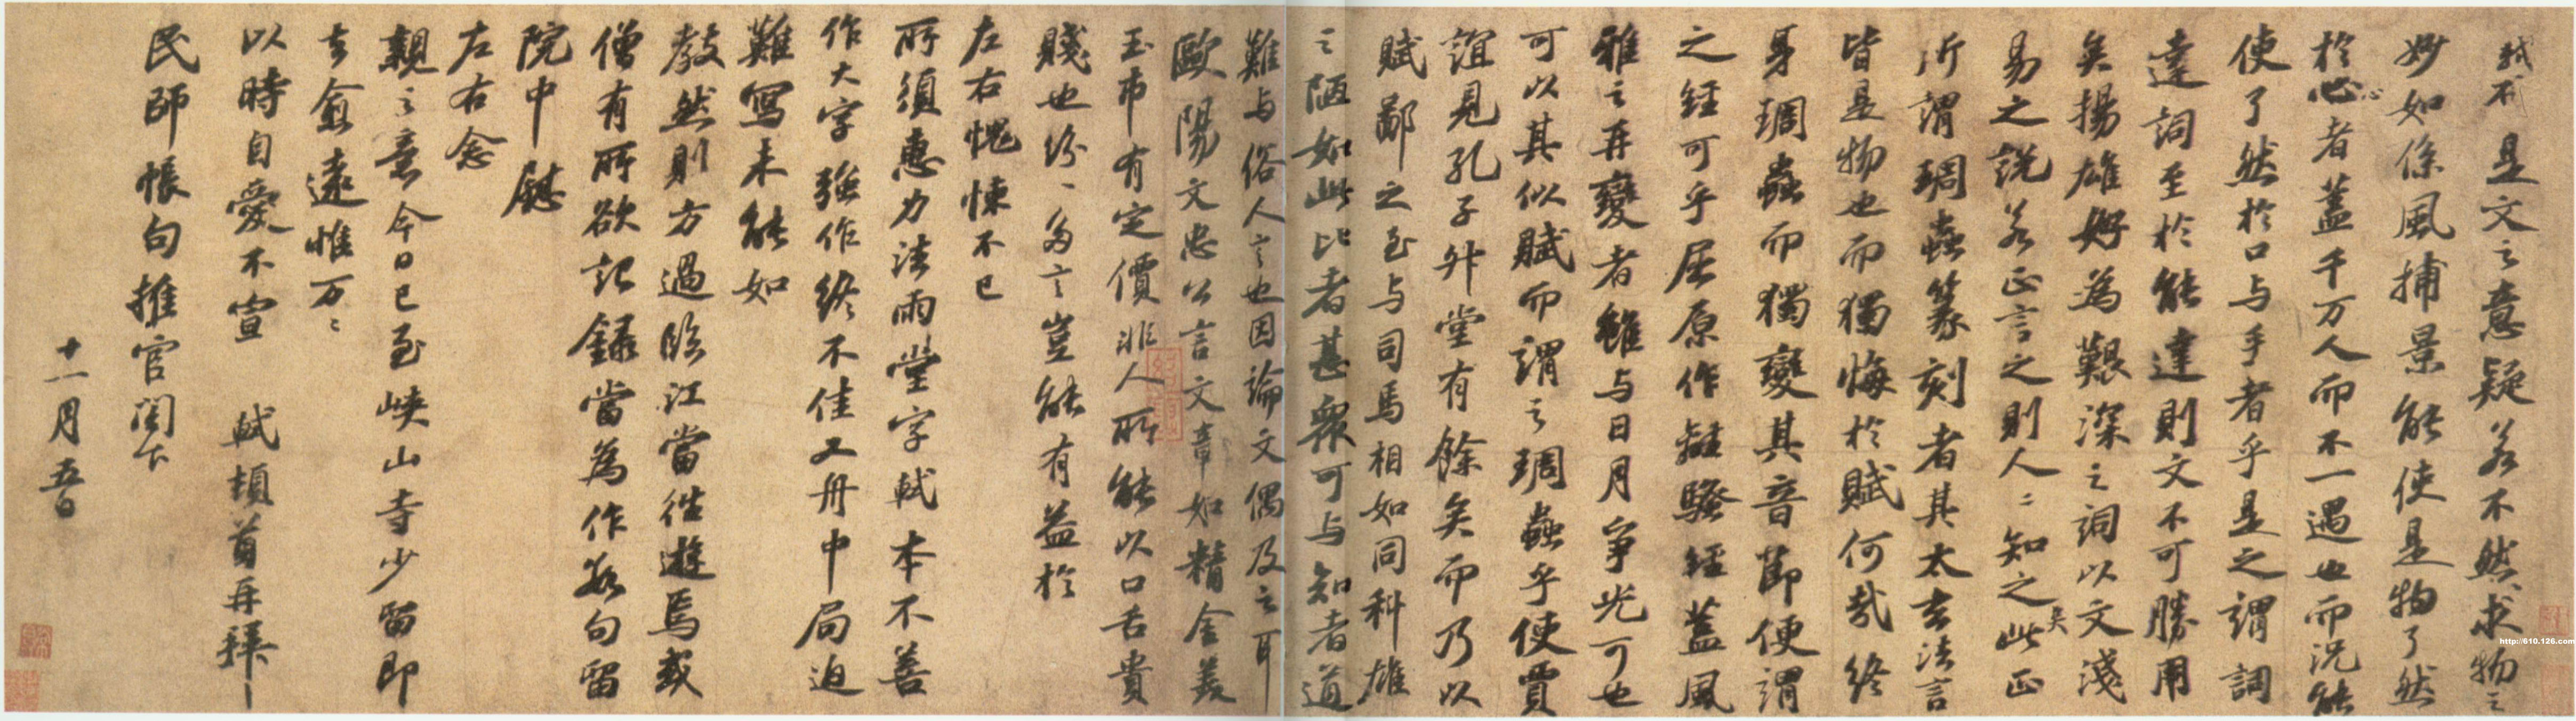 軾不 是文之意疑若不然求物之
妙如係風捕景能使是物了然
於心者蓋千万人而不一遇也而況能
使了然於口与手者乎是之謂詞
達詞至於能達則文不可勝用
矣揚雄好為艱深之詞以文淺
易之說若正言之則人〻知之矣此正
所謂琱蟲篆刻者其太玄法言
皆是物也而獨悔於賦何哉終
身琱蟲而獨變其音節便謂
之經可乎屈原作離騷經蓋風
雅之再變者雖与日月爭光可也
可以其似賦而謂之琱蟲乎使賈
誼見孔子升堂有餘矣而乃以
賦鄙之至与司馬相如同科雄
之陋如此比者甚衆可与知者道
難与俗人言也因論文偶及之耳
歐陽文忠公言文章如精金美
玉市有定價非人所能以口舌貴
賤也紛〻多言豈能有益於
左右愧悚不已
所須惠力法雨堂字軾本不善
作大字強作終不佳又舟中局迫
難寫未能如
教然則方過臨江當往遊焉或
僧有所欲記錄當為作數句留
院中慰
左右念
親之意今日已至峽山寺少留即
去愈遠惟万〻
以時自愛不宣 軾頓首再拜
民師帳句推官閣下
十一月五日
http://610.126.com